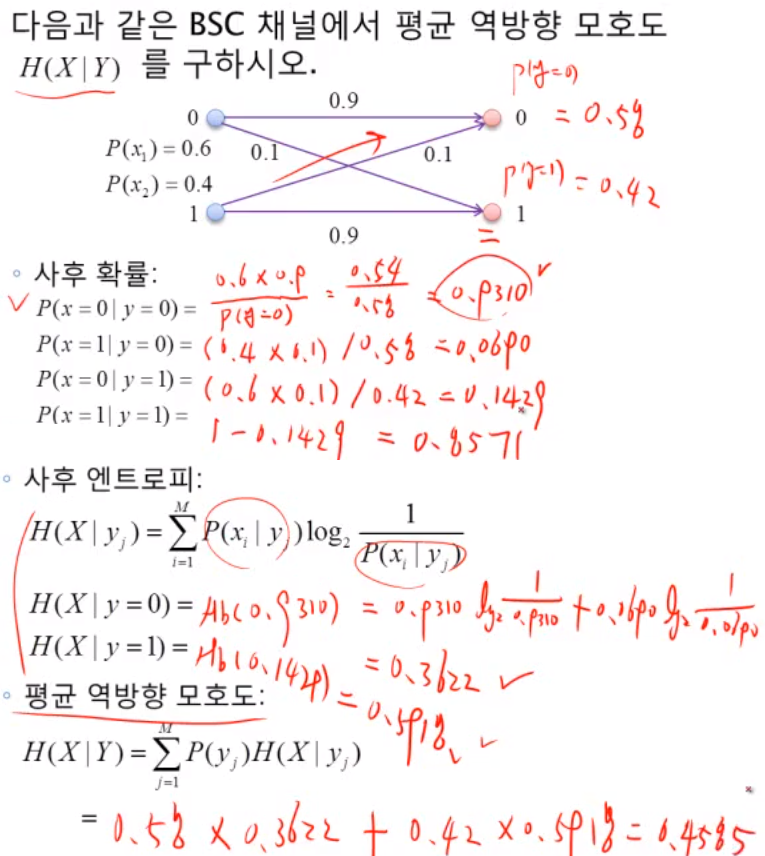 다음과 같은 BSC 채널에서 평균 역방향 모호도
H(X|Y) 를 구하시오.
p(y=0)
0 0.9 0 = 0.58
P(x₁) = 0.6 0.1 0.1
P(x₂) = 0.4 p(y=1) = 0.42
1 0.9 1
◦ 사후 확률:
P(x = 0 | y = 0) = 0.6 × 0.9 / p(y=0) = 0.54 / 0.58 = 0.9310
P(x = 1 | y = 0) = (0.4 × 0.1) / 0.58 = 0.0690
P(x = 0 | y = 1) = (0.6 × 0.1) / 0.42 = 0.1429
P(x = 1 | y = 1) = 1 - 0.1429 = 0.8571
◦ 사후 엔트로피:
H(X | yⱼ) = ∑_{i=1}^{M} P(xᵢ | yⱼ) log₂ 1 / P(xᵢ | yⱼ)
H(X | y = 0) = Hb(0.9310) = 0.9310 log₂ 1 / 0.9310 + 0.0690 log₂ 1 / 0.0690
= 0.3622
H(X | y = 1) = Hb(0.1429) = 0.5918
◦ 평균 역방향 모호도:
H(X | Y) = ∑_{j=1}^{M} P(yⱼ)H(X | yⱼ)
= 0.58 × 0.3622 + 0.42 × 0.5918 = 0.4585